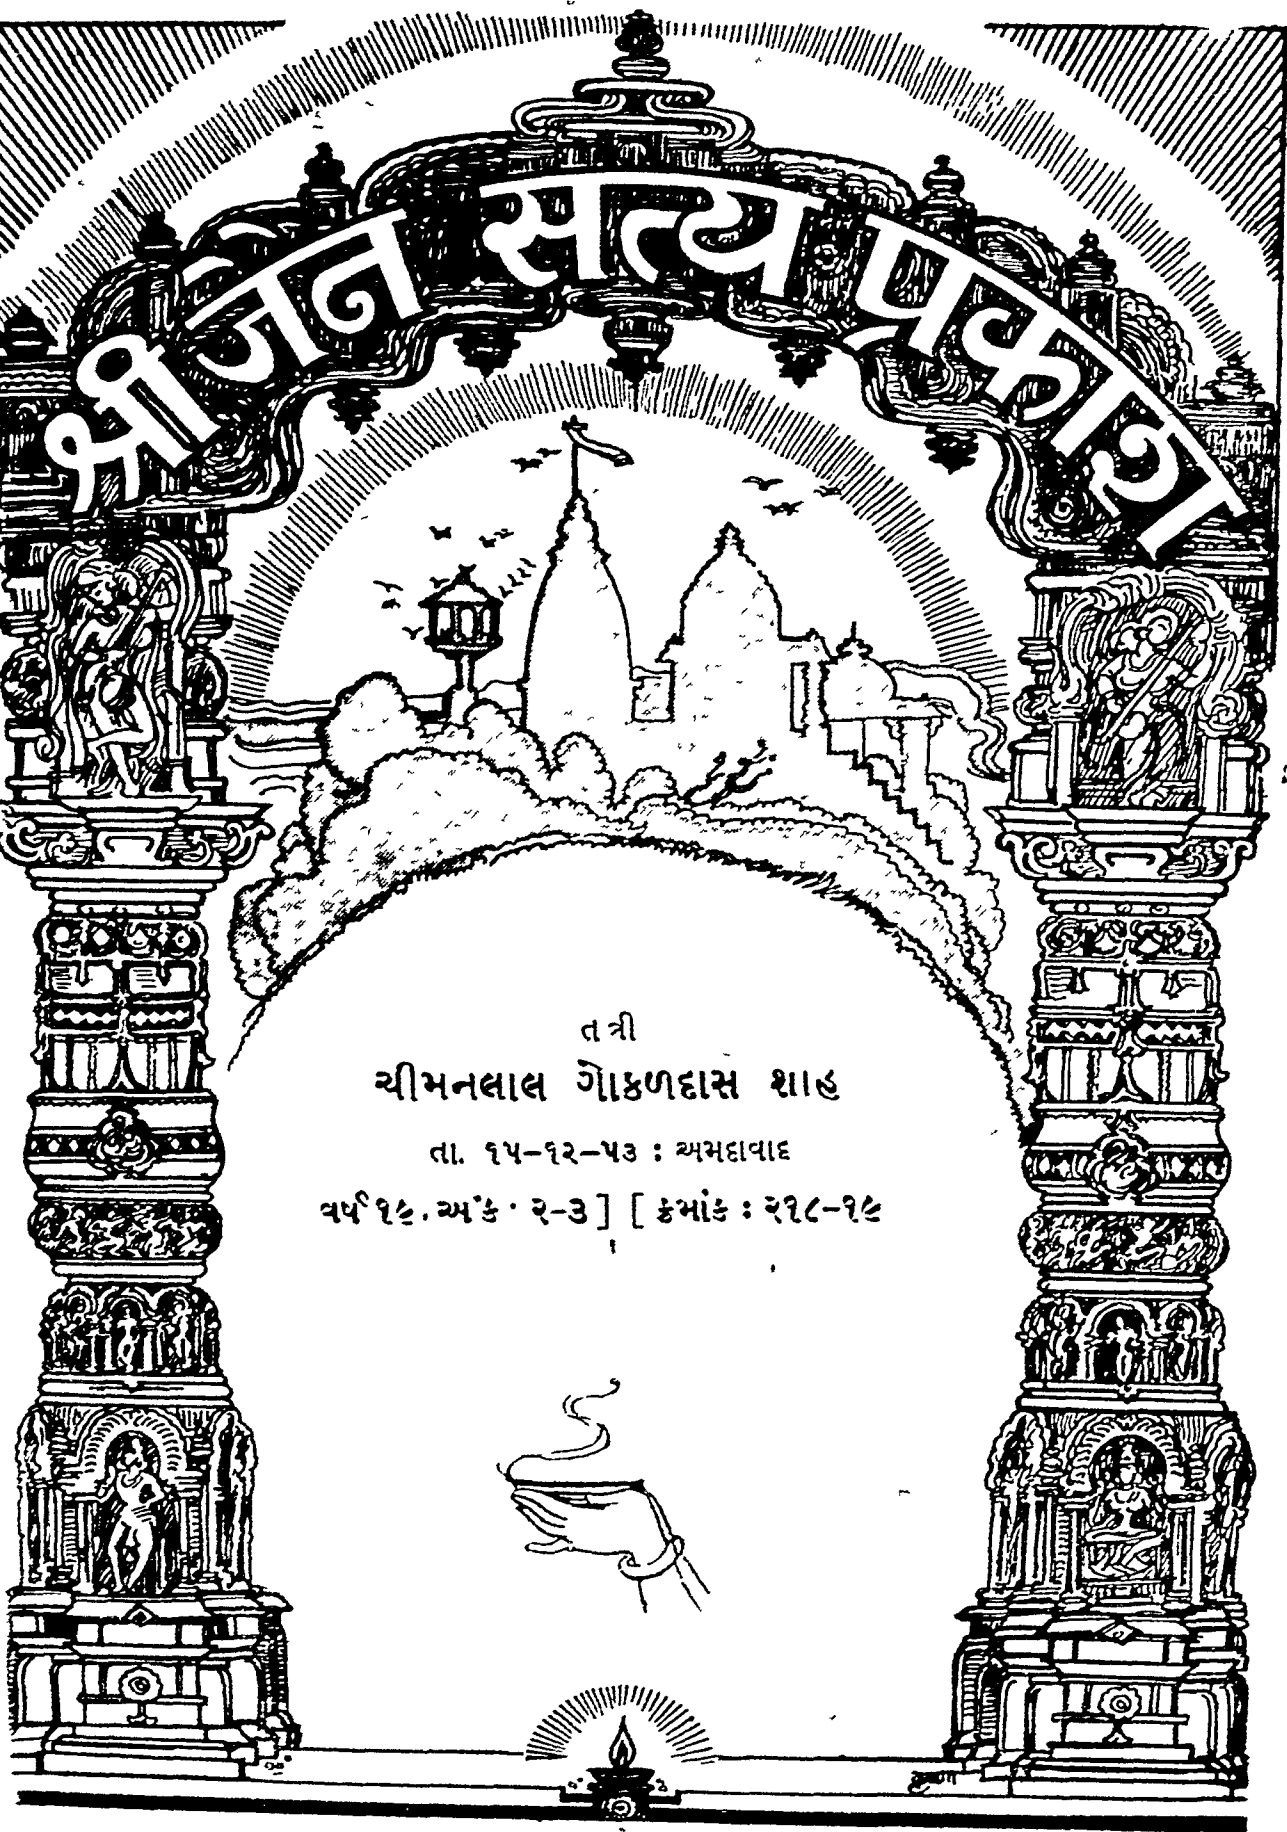 श्री जैन सत्य प्रकाश
તંત્રી
ચીમનલાલ ગોકળદાસ શાહ
તા. ૧૫-૧૨-૫૩ : અમદાવાદ
વર્ષ ૧૯ . અંક : ૨-૩ ] [ ક્રમાંક : ૨૧૮-૧૯